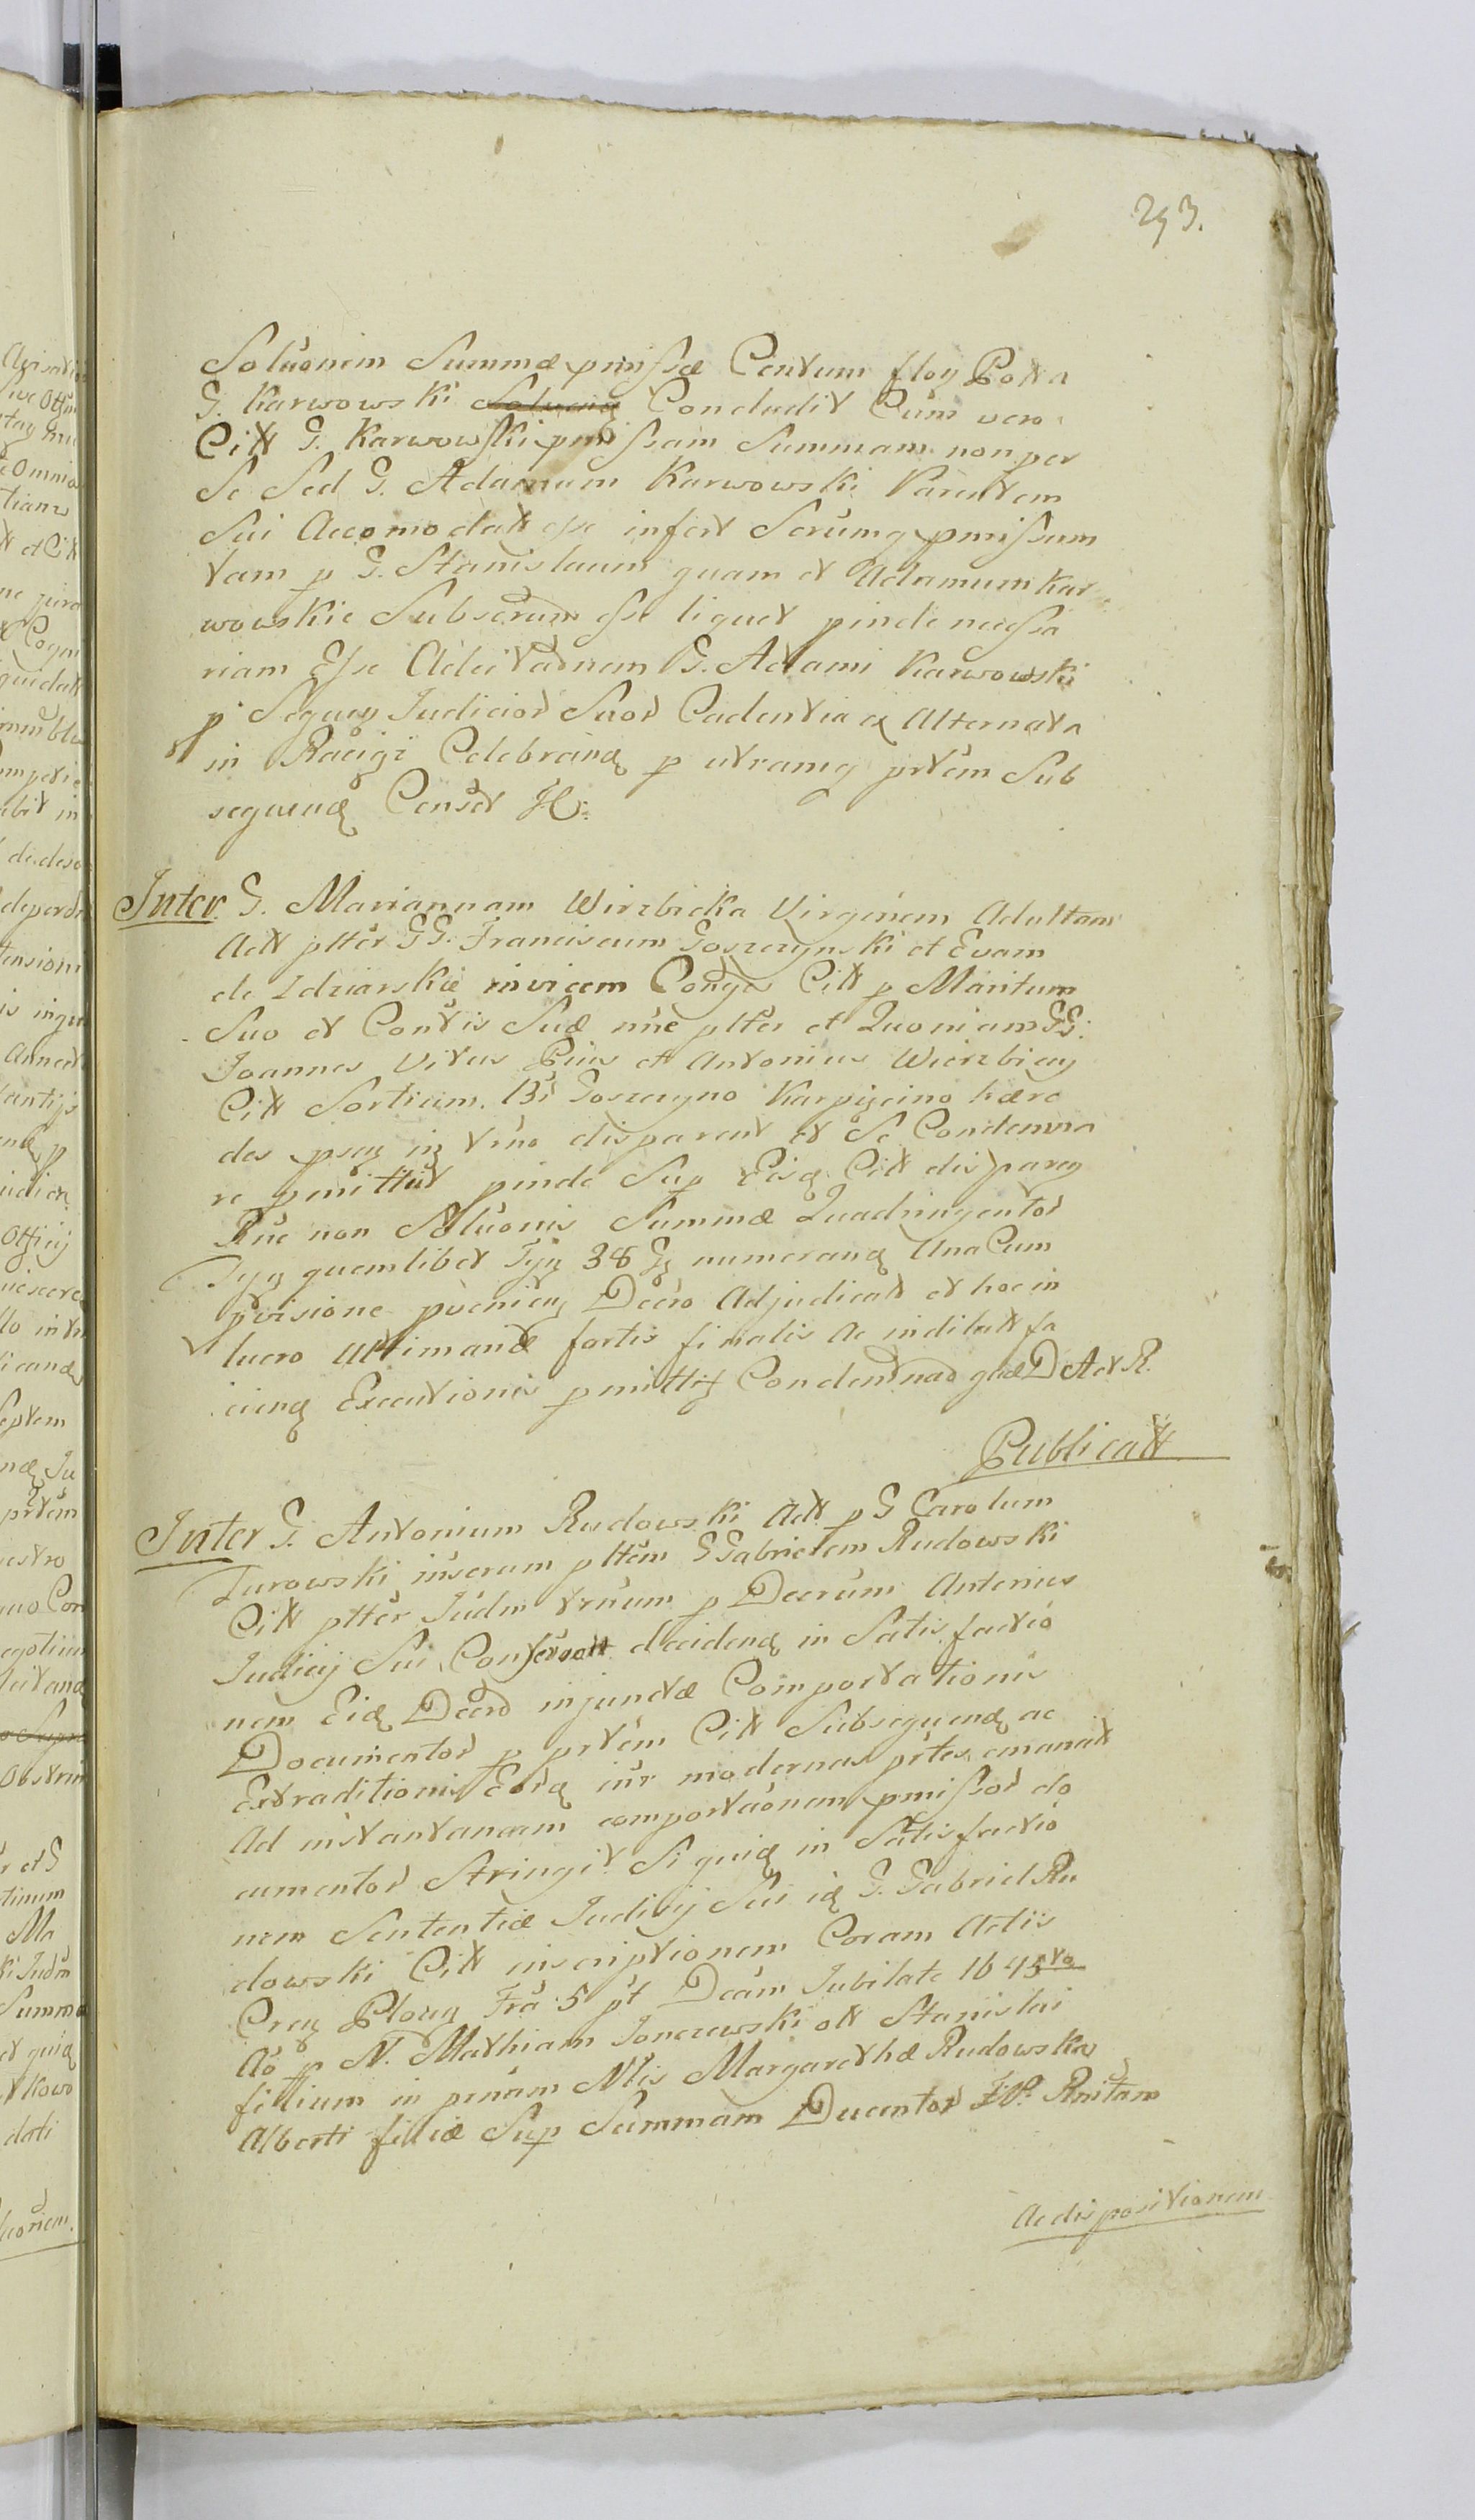 293.
Soluonem Summæ pmissæ Centum floŋ Poltt a
G. Karwowski Concludit Cum vero
Citt G. Karwowski pmissam Summam non per
Se Sed G. Adamum Karwowski Parentem
Sui Accomodatt esse infert Scrumq pmissum
tam p G. Stanislaum quam et Adamum Kar
wowskie Subscrum esse liquet pinde necessa
riam Esse Adcitaonem G. Adami Karwowski
p Sequen Judicior Suor Cadentia ex Alternata
in Raciąż Celebranq p utramq prtem Sub
sequend Censet
Inter G. Mariannam Wirzbicka Virginem Adultam
Actt plter GG. Franciscum Goszczynski et Evam
de Idziarskie invicem Conges Citt p Maritum
Suo et Contis Suæ nne plter et Quoniam GG.
Joannes Vitus Pius et Antonius Wierzbiccy
Citt Sortium Bi Goszczyno Karpigcino hære
des in trno disparent et Se Condemna
re pmittut pinde Sup Eisq Citt disparen
Rne non Soluonis Summæ Quadringentor
Tyŋ quemlibet Tyŋ 38 Gŋ numerand Una Cum
pvisione pvenien Decro Adjudicat et hoc in
lucro ultimariæ fortis finalis Ac indilatt fa
ciend Executionis pmittit
Publicatt
Inter G. Antonium Rudowski Actt p G Carolum
Turowski inscrum pltem G Gabrielem Rudowski
Citt plter Judm trnum p Decrum Anterius
Judicij Sui decidend in Satisfactio
nem Eiq Decro injunctæ Comportationis
Documentor p prtem Citt Subsequend ac
Extraditionis Eorq int modernas prtes emanatt
Ad instantaneam comportaonem pmissor do
cumentor Stringit Siquiq in Satisfactio
nem Sententiæ Judicij Sui iq G. Gabriel Ru
dowski Citt inscriptionem Coram Actis
Fra 5 pt Dcam Jubilate 1645to
Ao p N. Mathiam Jonczewski olt Stanislai
filium in psnam Nlis Margarethæ Rudowska
Alberti filiæ Sup Summam Ducentor Rnitam
Ac dispositionem